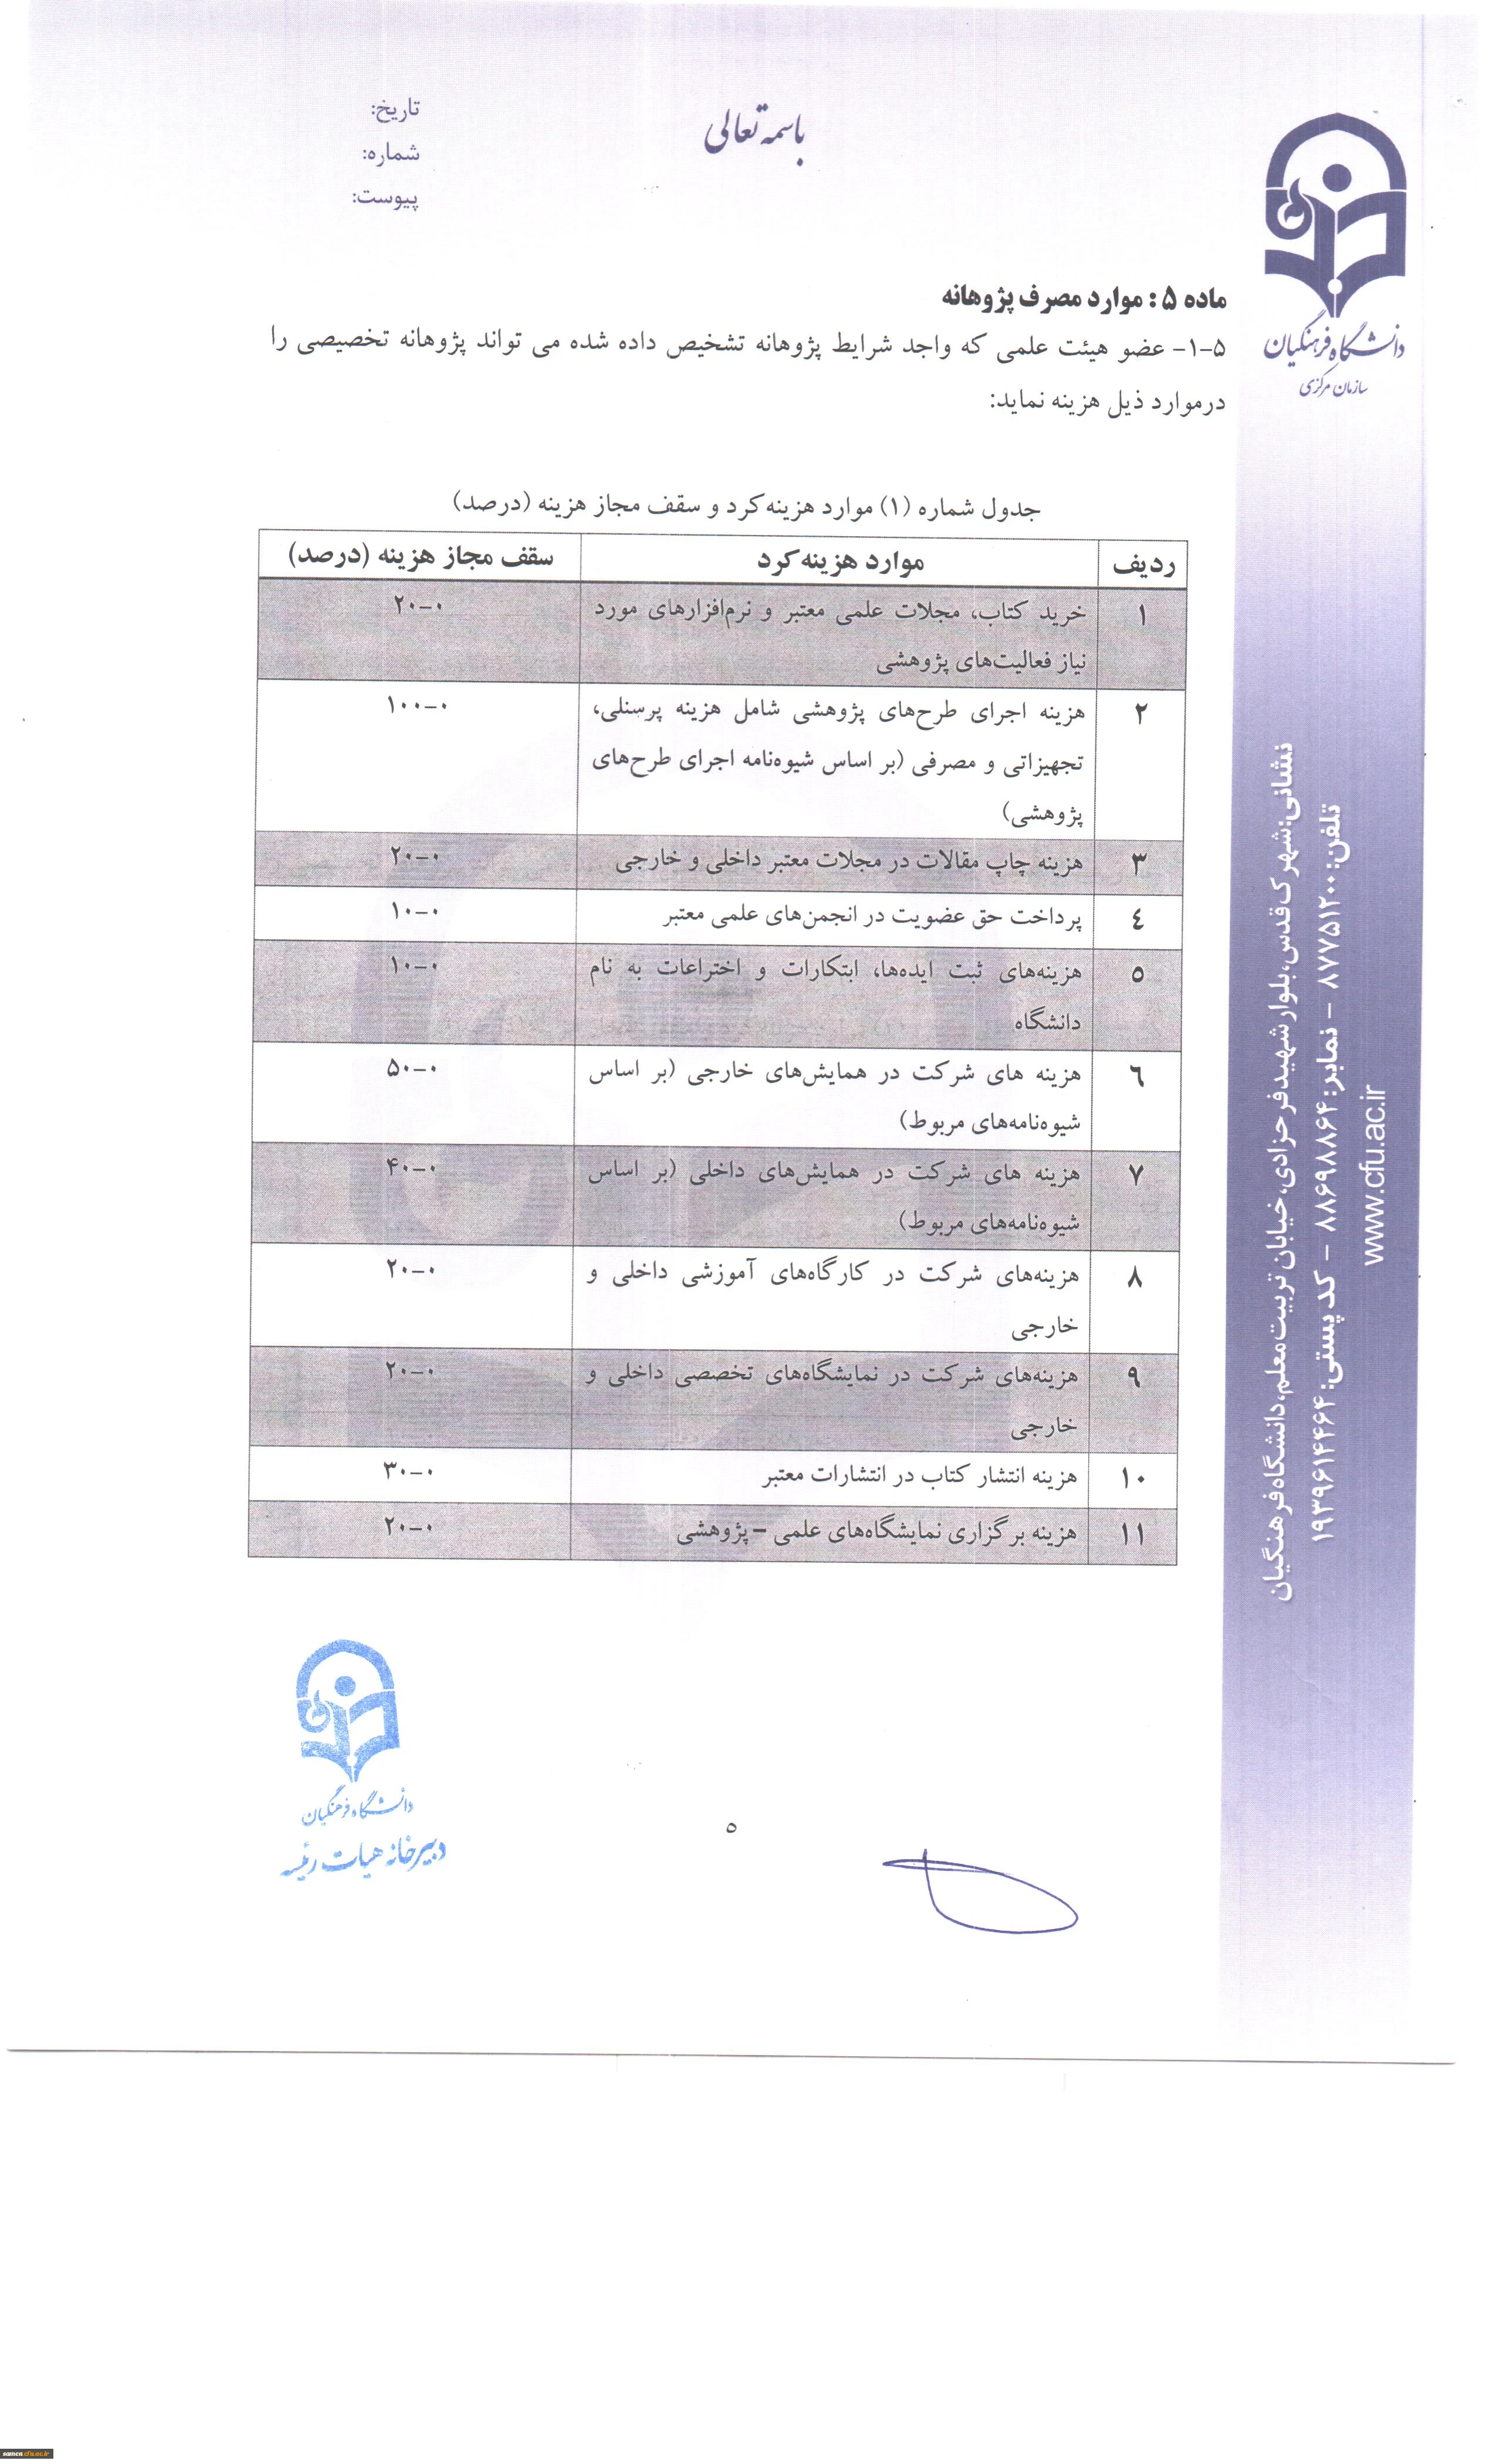 باسمه تعالی
تاریخ:
شماره:
پیوست:
دانشگاه فرهنگیان
سازمان مرکزی
ماده ۵ : موارد مصرف پژوهانه
۵-۱- عضو هیئت علمی که واجد شرایط پژوهانه تشخیص داده شده می تواند پژوهانه تخصیصی را
درموارد ذیل هزینه نماید:
جدول شماره (۱) موارد هزینه‌کرد و سقف مجاز هزینه (درصد)
ردیف موارد هزینه‌کرد سقف مجاز هزینه (درصد)
۱ خرید کتاب، مجلات علمی معتبر و نرم‌افزارهای مورد ۰-۲۰
نیاز فعالیت‌های پژوهشی
۲ هزینه اجرای طرح‌های پژوهشی شامل هزینه پرسنلی، ۰-۱۰۰
تجهیزاتی و مصرفی (بر اساس شیوه‌نامه اجرای طرح‌های
پژوهشی)
۳ هزینه چاپ مقالات در مجلات معتبر داخلی و خارجی ۰-۲۰
٤ پرداخت حق عضویت در انجمن‌های علمی معتبر ۰-۱۰
۵ هزینه‌های ثبت ایده‌ها، ابتکارات و اختراعات به نام ۰-۱۰
دانشگاه
٦ هزینه های شرکت در همایش‌های خارجی (بر اساس ۰-۵۰
شیوه‌نامه‌های مربوط)
۷ هزینه های شرکت در همایش‌های داخلی (بر اساس ۰-۴۰
شیوه‌نامه‌های مربوط)
۸ هزینه‌های شرکت در کارگاه‌های آموزشی داخلی و ۰-۲۰
خارجی
۹ هزینه‌های شرکت در نمایشگاه‌های تخصصی داخلی و ۰-۲۰
خارجی
۱۰ هزینه انتشار کتاب در انتشارات معتبر ۰-۳۰
۱۱ هزینه برگزاری نمایشگاه‌های علمی – پژوهشی ۰-۲۰
نشانی:شهرک قدس،بلوار شهید فرحزادی،خیابان تربیت معلم،دانشگاه فرهنگیان
تلفن: ۸۷۷۵۱۲۰۰ - نمابر: ۸۸۶۹۸۸۶۴ - کد پستی: ۱۹۳۹۶۱۴۴۶۴
www.cfu.ac.ir
دانشگاه فرهنگیان
دبیرخانه هیات رئیسه
۵
samen.cfu.ac.ir